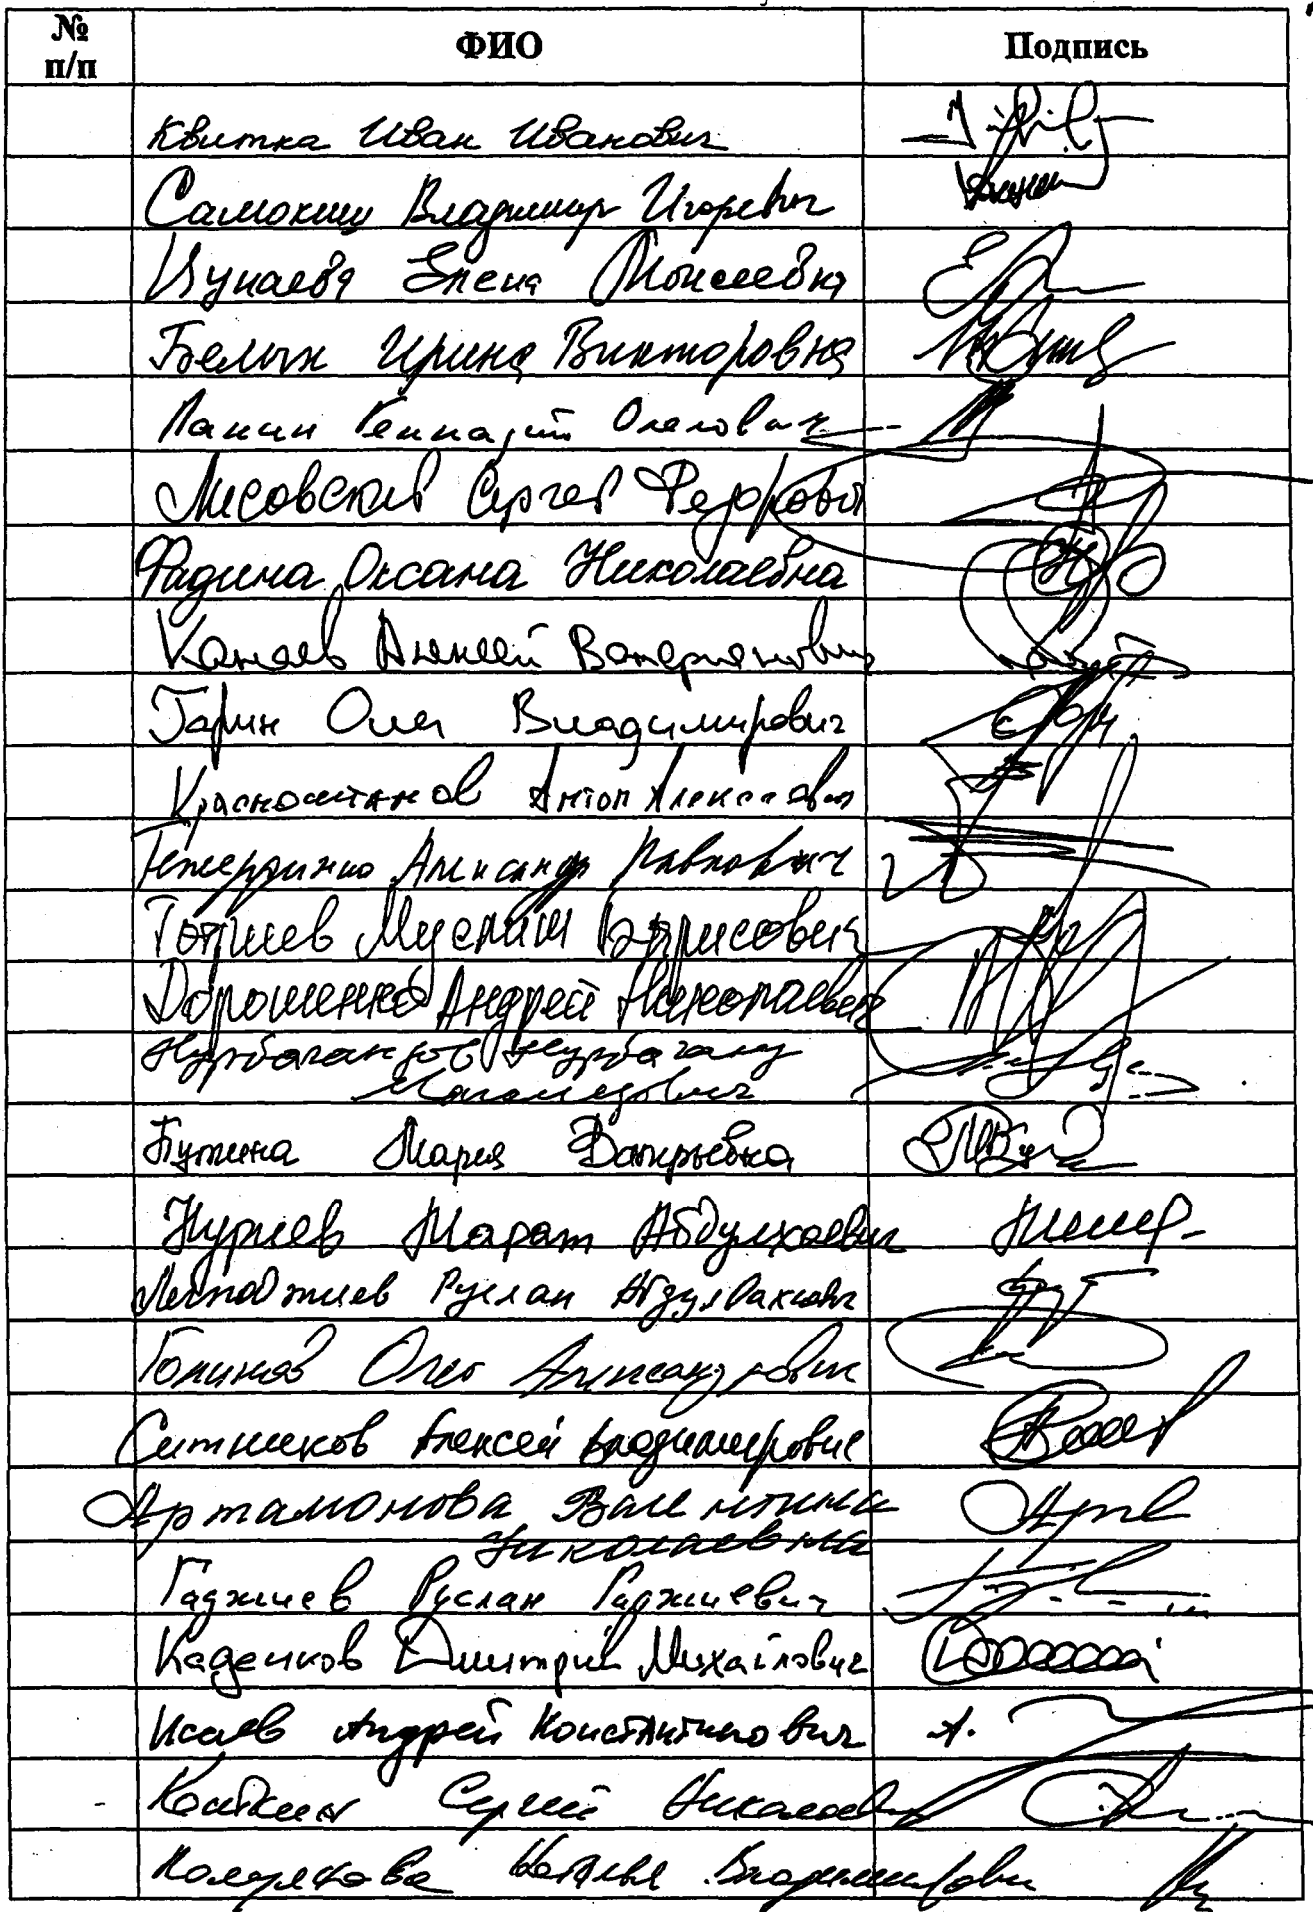 № п/п ФИО Подпись
Квитка Иван Иванович
Самокиш Владимир Игоревич
Цунаева Елена Моисеевна
Белых Ирина Викторовна
Панин Геннадий Олегович
Лисовский Сергей Федорович
Фадина Оксана Николаевна
Канаев Алексей Валерианович
Гарин Олег Владимирович
Красноштанов Антон Алексеевич
Тетердинко Александр Павлович
Топчиев Муслим Борисович
Дорошенко Андрей Николаевич
Нурбагандов Нурбаганд
Магомедович
Бутина Мария Валерьевна
Нуриев Марат Абдулхаевич
Руслан
Голиков Олег Александрович
Ситников Алексей Владимирович
Артамонова Валентина
Николаевна
Гаджиев Руслан Гаджиевич
Каденков Дмитрий Михайлович
Исаев Андрей Константинович
Сергей Николаевич
Полуянова Наталья Владимировн